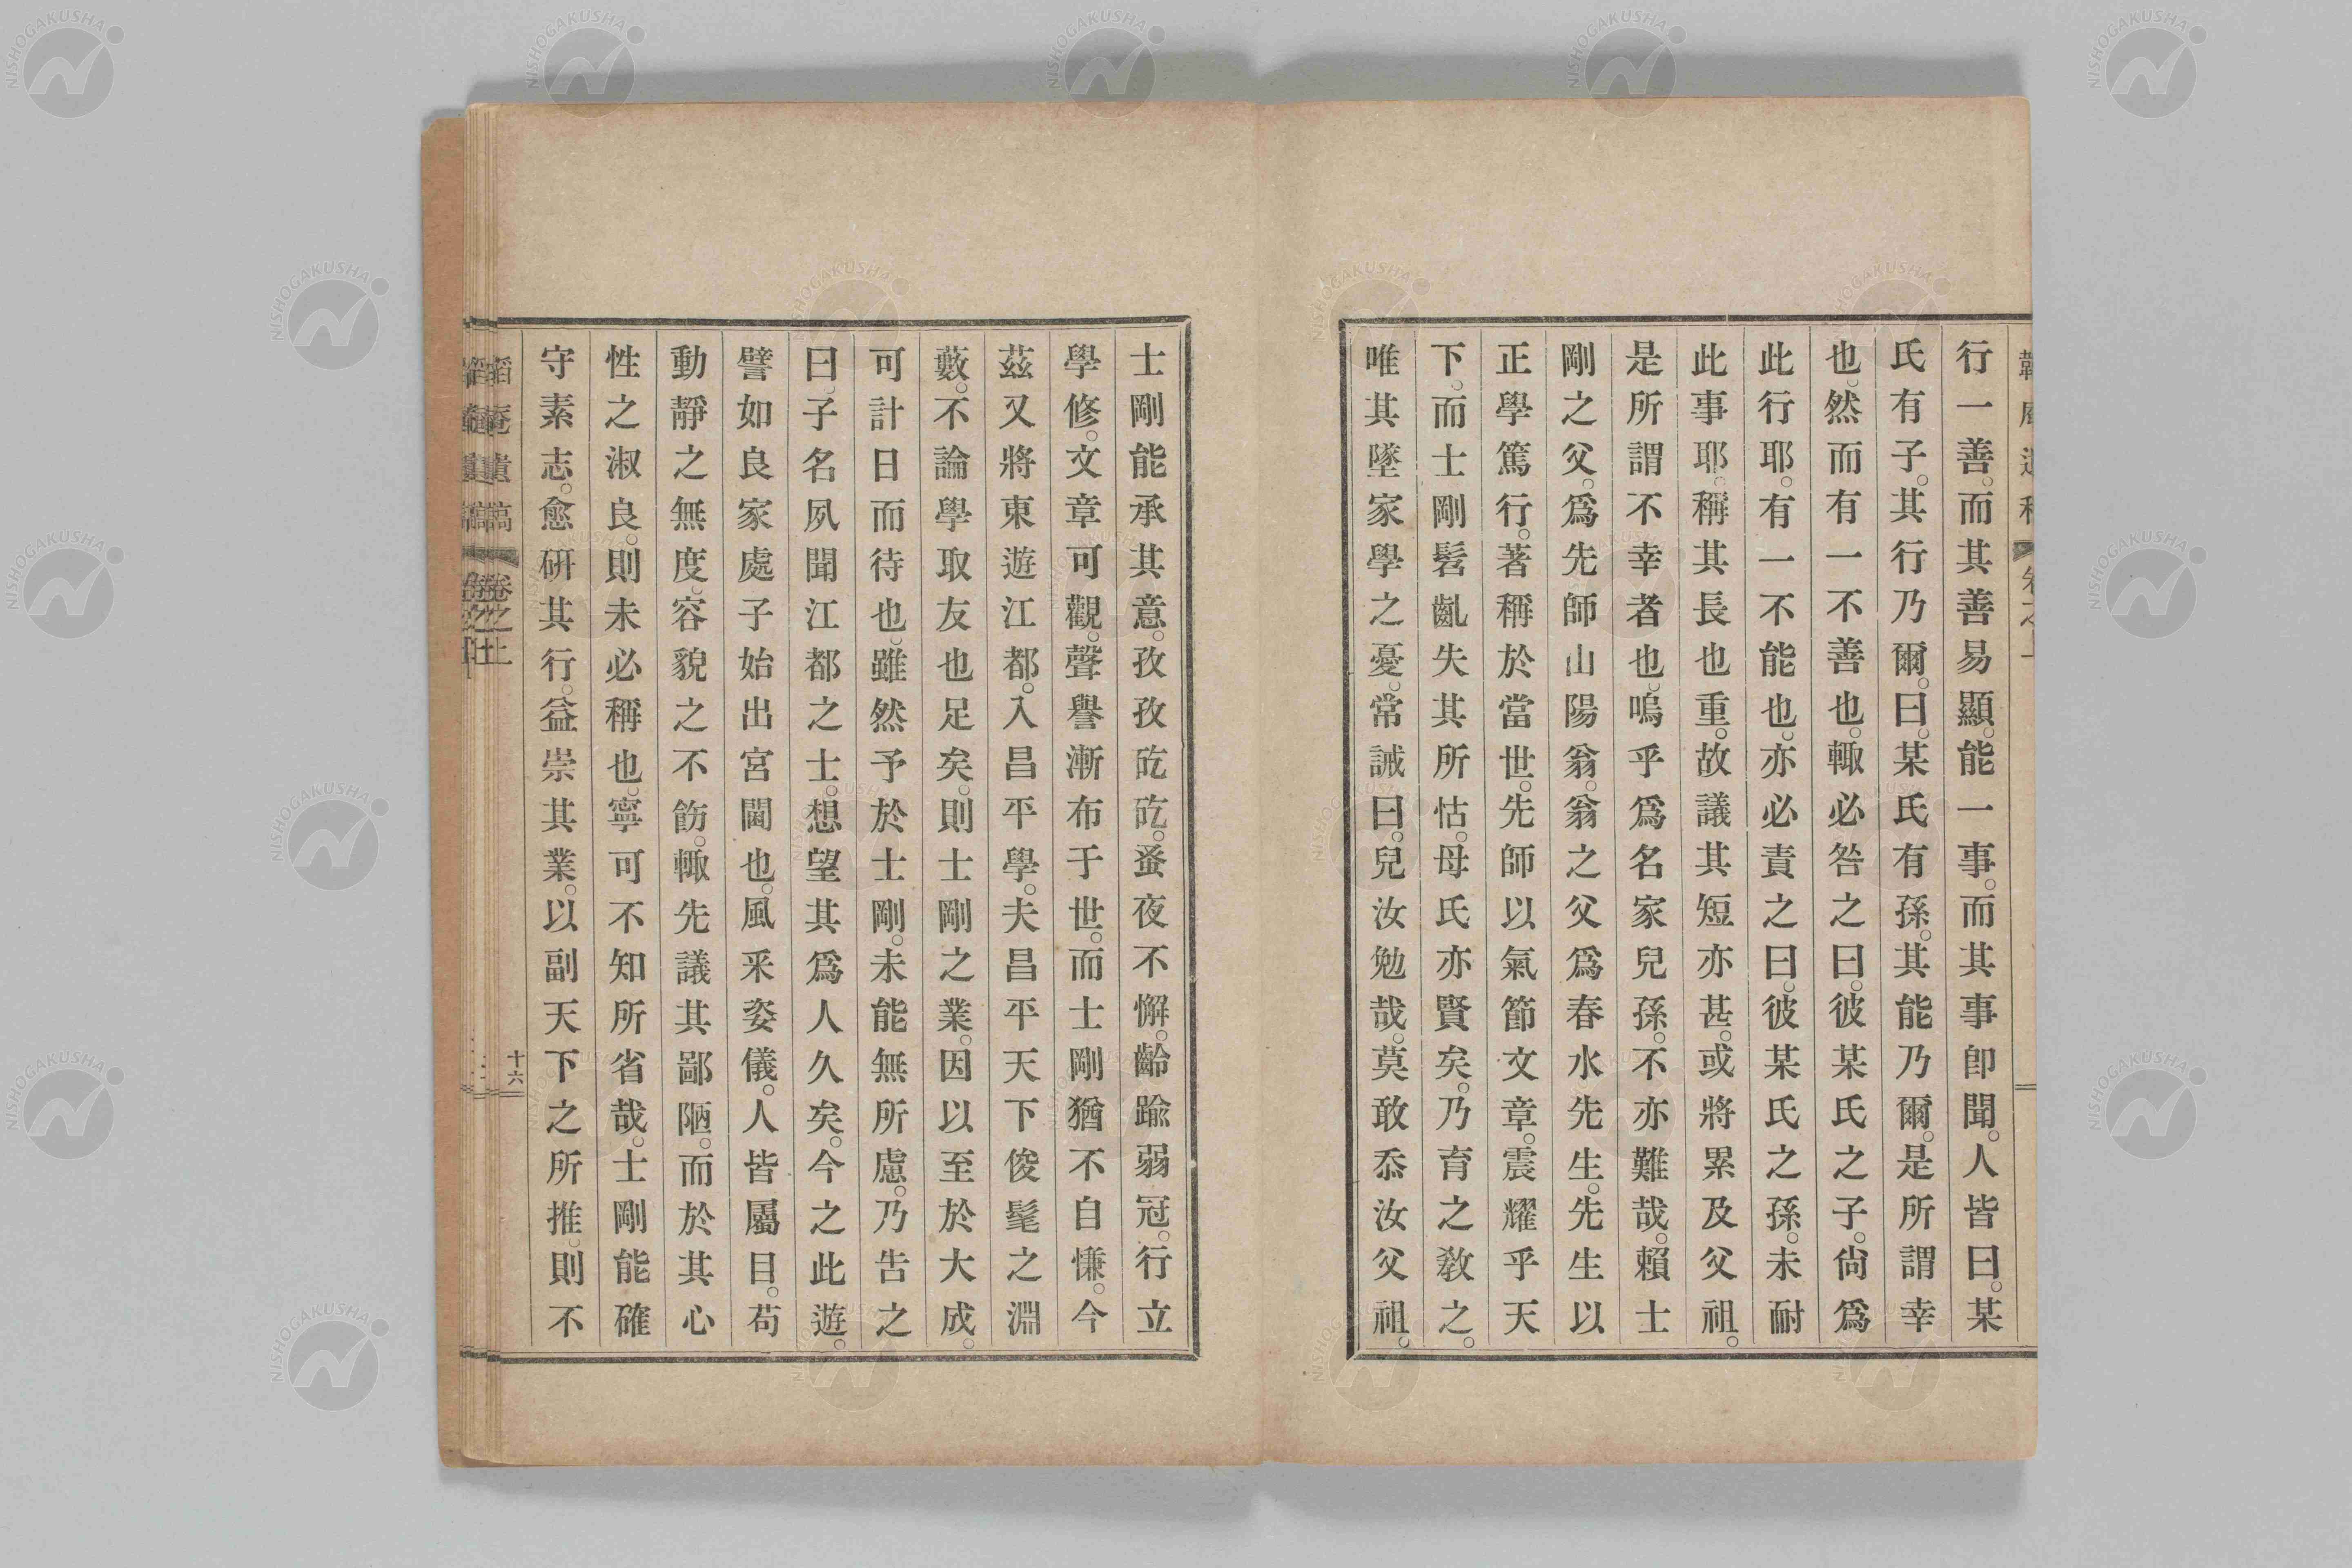 行一善。而其善易顯。能一事。而其事卽聞。人皆曰。某
氏有子。其行乃爾。曰。某氏有孫。其能乃爾。是所謂幸
也。然而有一不善也。輙必咎之曰。彼某氏之子。尙爲
此行耶。有一不能也。亦必責之曰。彼某氏之孫。未耐
此事耶。稱其長也重。故議其短亦甚。或將累及父祖。
是所謂不幸者也。嗚乎爲名家兒孫。不亦難哉。賴士
剛之父。爲先師山陽翁。翁之父爲春水先生。先生以
正學篤行。著稱於當世。先師以氣節文章。震耀乎天
下。而士剛髫齔失其所怙。母氏亦賢矣。乃育之敎之。
唯其墜家學之憂。常誡曰。兒汝勉哉。莫敢忝汝父祖。
士剛能承其意。孜孜矻矻。蚤夜不懈。齡踰弱冠。行立
學修。文章可觀。聲譽漸布于世。而士剛猶不自慊。今
茲又將東遊江都。入昌平學。夫昌平天下俊髦之淵
藪。不論學取友也足矣。則士剛之業。因以至於大成。
可計日而待也。雖然予於士剛。未能無所慮。乃告之
曰。子名夙聞江都之士。想望其爲人久矣。今之此遊。
譬如良家處子始出宮閫也。風釆姿儀。人皆屬目。苟
動靜之無度。容貌之不飭。輙先議其鄙陋。而於其心
性之淑良。則未必稱也。寧可不知所省哉。士剛能確
守素志。愈硏其行。益崇其業。以副天下之所推。則不
菴遺稿 卷之上
十六
NISHOGAKUSHA